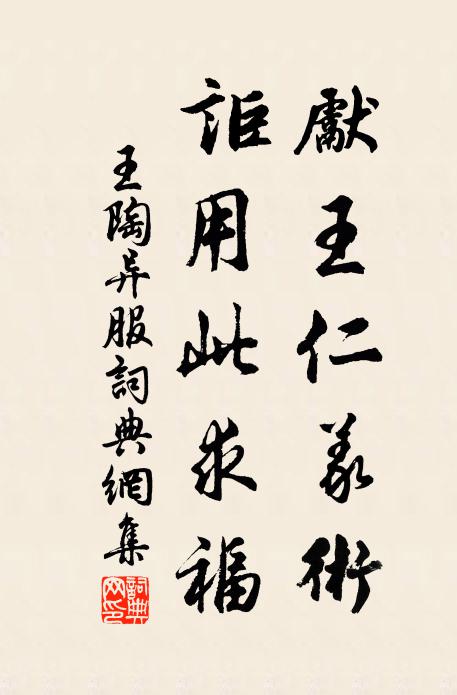 獻王仁義術
詎用此求福
王陶异服詞典網集
詞典網印